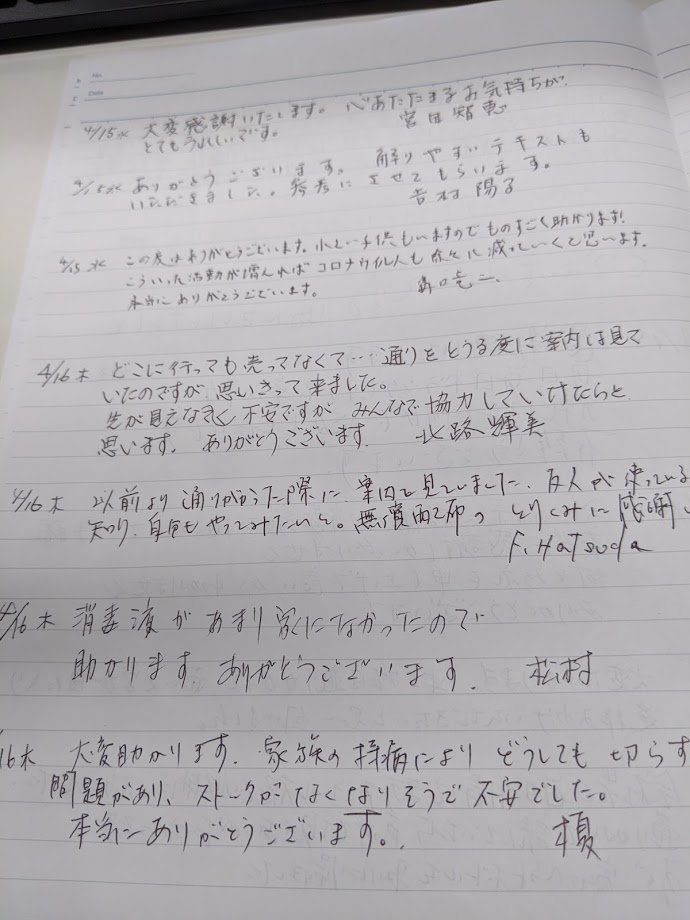 No.
Date
4/15水 大変感謝いたします。心あたたまるお気持ちが、
とてもうれしいです。 宮田智恵
4/15水 ありがとうございます。 解りやすいテキストも
いただきました。参考にさせてもらいます。
吉村 陽子
4/15 水 この度はありがとうございます。小さい子供もいますのでものすごく助かります!
こういった活動が増えれば コロナウイルスも 徐々に減っていくと思います。
本当にありがとうございます。
4/16 木 どこに行っても売ってなくて… 通りをとうる度に案内は見て
いたのですが 思いきって来ました。
先が見えなく 不安ですが みんなで協力していけたらと
思います。 ありがとうございます。 北路 輝美
4/16 木 以前より通りがかった際に 案内を見ていました。友人が使っている
知り、自分もやってみたいと。無償配布の とりくみに感謝
F. Hatsuda
4/16 木 消毒液があまり家になかったので
助かります。ありがとうございます。 松村
16木 大変助かります。家族の持病により どうしても 切らす
問題があり、ストックがなくなりそうで 不安でした。
本当にありがとうございます。. 榎